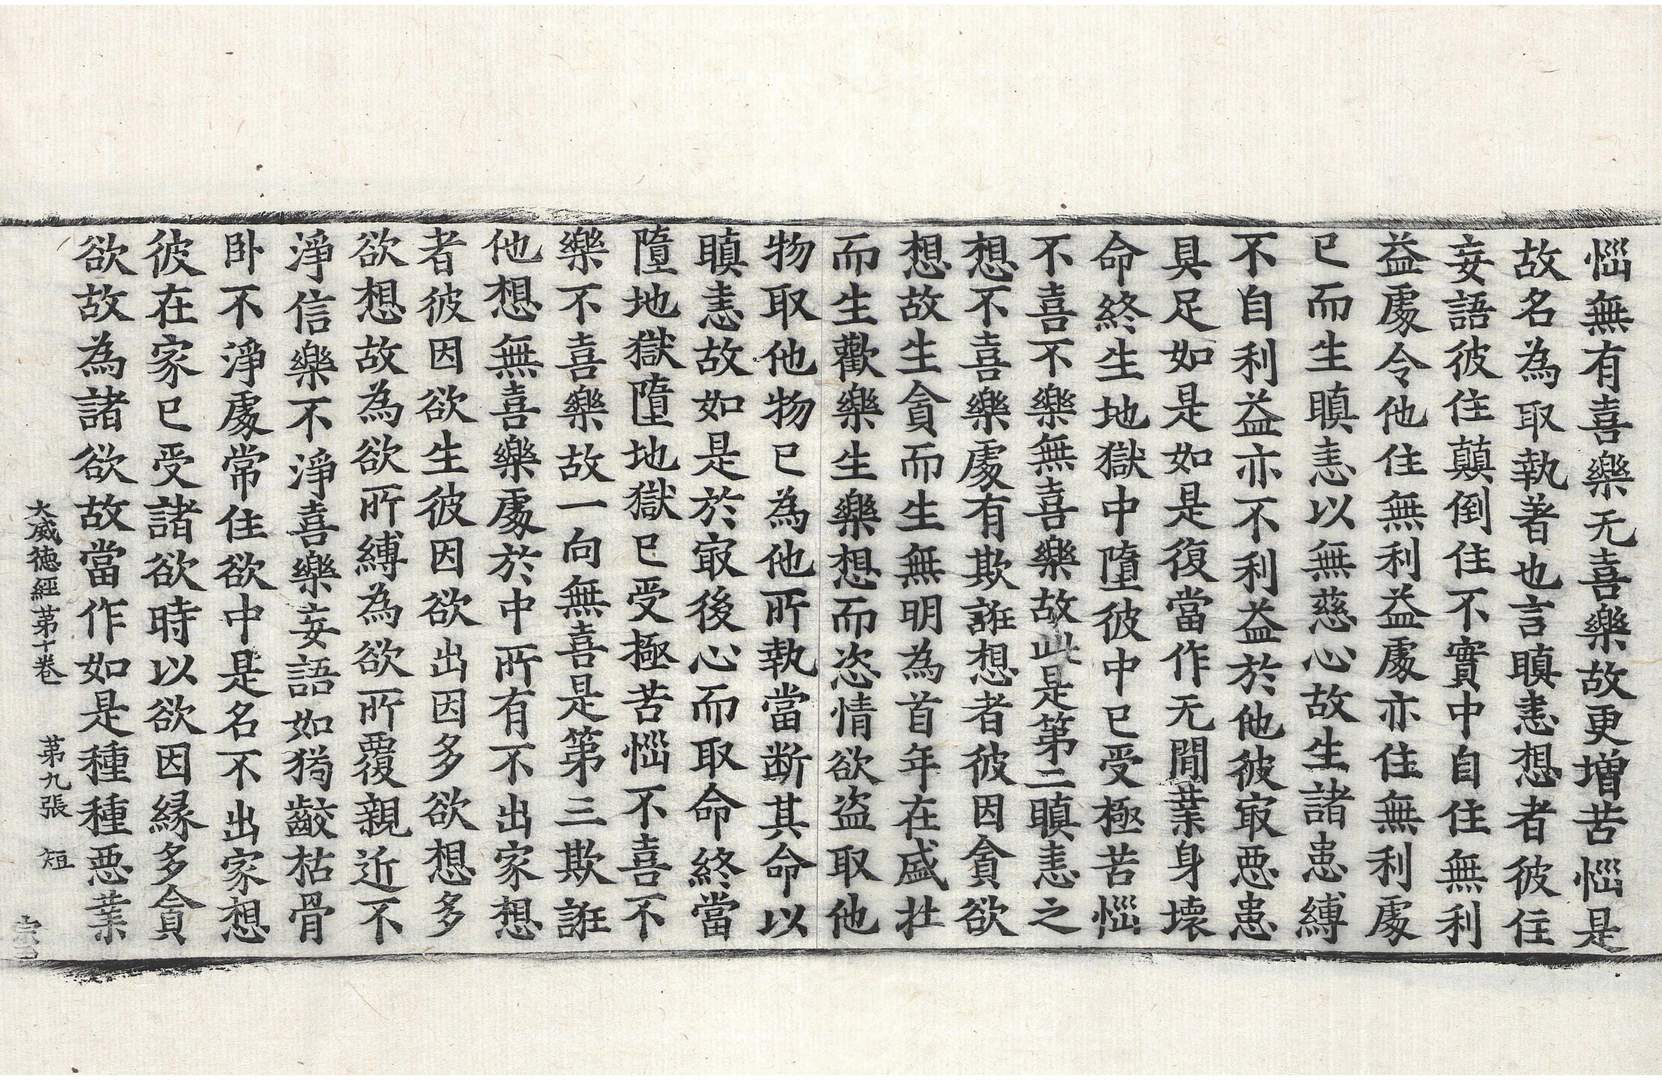 惱無有喜樂无喜樂故更增苦惱是
故名為取執著也言瞋恚想者彼住
妄語彼住顛倒住不實中自住無利
益處令他住無利益處亦住無利處
已而生瞋恚以無慈心故生諸患縛
不自利益亦不利益於他彼㝡惡患
具足如是如是復當作无間業身壞
命終生地獄中墮彼中已受極苦惱
不喜不樂無喜樂故此是第二瞋恚之
想不喜樂處有欺誑想者彼因貪欲
想故生貪而生無明為首年在盛壯
而生歡樂生樂想而恣情欲盜取他
物取他物已為他所執當断其命以
瞋恚故如是於㝡後心而取命終當
墮地獄墮地獄已受極苦惱不喜不
樂不喜樂故一向無喜是第三欺誑
他想無喜樂處於中所有不出家想
者彼因欲生彼因欲出因多欲想多
欲想故為欲所縛為欲所覆親近不
淨信樂不淨喜樂妄語如㺃齩枯骨
卧不淨處常住欲中是名不出家想
彼在家已受諸欲時以欲因緣多貪
欲故為諸欲故當作如是種種惡業
大威德經第十卷　第九張　短